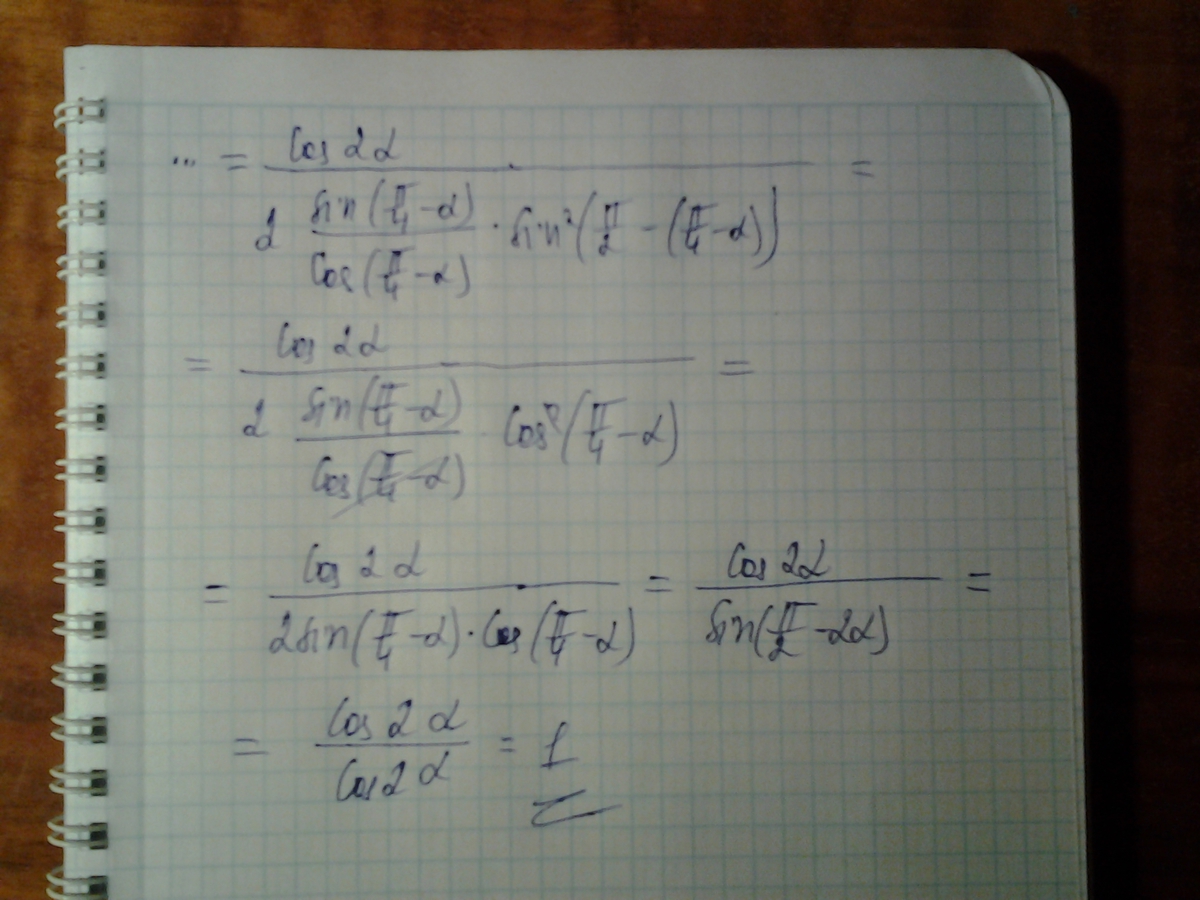 ... = cos 2α / (2 sin(π/4 − α) / cos(π/4 − α) · sin²(π/2 − (π/4 − α))) =
= cos 2α / (2 sin(π/4 − α) / cos(π/4 − α) cos²(π/4 − α)) =
= cos 2α / (2 sin(π/4 − α) · cos(π/4 − α)) = cos 2α / sin(π/2 − 2α) =
= cos 2α / cos 2α = 1